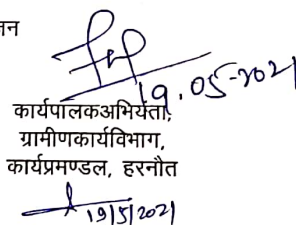 जन
19.05-2021
कार्यपालकअभियंता,
ग्रामीणकार्यविभाग,
कार्यप्रमण्डल, हरनौत
19/5/2021